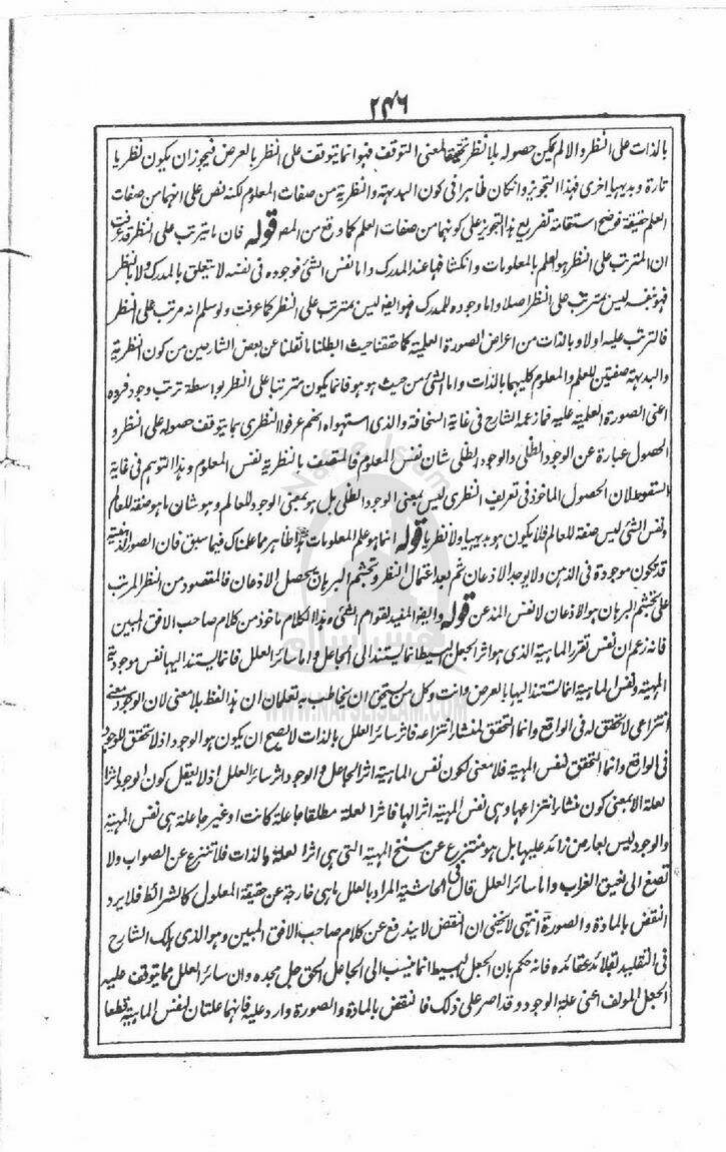 ٢٤٦
بالذات على النظر والا لم يكن حصوله بلا نظر تحقيقا لمعنى التوقف فهو انما يتوقف على النظر بالعرض فيجوز ان يكون نظريا
تارة وبديهيا اخرى فهذا التجويز وانكان ظاهرا فى كون البداهة والنظرية من صفات المعلوم لكنه نص على انهما من صفات
العلم حقيقة فوضح استقامة تفريع هذا التجويز على كونهما من صفات العلم كما وقع من المصـ قوله فان ما يترتب على النظر قد عرفت
ان المترتب على النظر هو العلم بالمعلومات وانكشافها عند المدرك واما نفس الشئ فوجوده فى نفسه لا يتعلق بالمدرك ولا بالنظر
فهو بنفسه ليس بمترتب على النظر اصلا واما وجوده للمدرك فهو ايضا ليس بمترتب على النظر كما عرفت ولو سلم انه مرتب على النظر
فالمترتب عليه اولا وبالذات من اعراض الصورة العلمية كما حققنا حيث ابطلنا ما نقلنا عن بعض الشارحين من كون النظرية
والبديهة صفتين للعلم والمعلوم كليهما بالذات واما الشئ من حيث هو هو فانما يكون مترتبا على النظر بواسطة ترتب وجود فرده
اعنى الصورة العلمية عليه فما زعمه الشارح فى غاية السخافة والذى استهواه انهم عرفوا النظرى بما يتوقف حصوله على النظر و
الحصول عبارة عن الوجود الظلى والوجود الظلى شان نفس المعلوم فالمتصف بالنظرية نفس المعلوم وهذا التوهم فى غاية
السقوط لان الحصول الماخوذ فى تعريف النظرى ليس بمعنى الوجود الظلى بل هو بمعنى الوجود للعالم وهو شان ما هو صفة للعالم
ونفس الشئ ليس صفة للعالم فلا يكون هو بديهيا ولا نظريا قوله انما هو علم المعلومات هذا ظاهر مما علمناك فيما سبق فان الصورة الذهنية
قد تكون موجودة فى الذهن ولا يوجد الاذعان ثم بعد اعتمال النظر وتجشم البرهان يتحصل الاذعان فالمقصود من النظر المرتب
على تجشم البرهان هو الاذعان لا نفس المذعن قوله وايضا المفيد لقوام الشئ هذا الكلام ماخوذ من كلام صاحب الافق المبين
فانه زعم ان نفس تقرر الماهية الذى هو اثر الجعل البسيط انما يستند الى الجاعل واما سائر العلل فانما يستند اليها نفس موجودية
المهية ونفس الماهية انما تستند اليها بالعرض وانت وكل من يستحق ان يخاطب به تعلمان ان هذا لفظ بلا معنى لان الوجود معنى
انتزاعى لا تحقق له فى الواقع وانما التحقق لمنشأ انتزاعه فاثر سائر العلل بالذات لا يصح ان يكون هو الوجود اذ لا تحقق للوجود
فى الواقع وانما التحقق لنفس المهية فلا معنى لكون نفس الماهية اثر الجاعل والوجود اثر سائر العلل اذ لا يعقل كون الوجود اثرا
لعلة الا بمعنى كون منشأ انتزاعها وهى نفس المهية اثرا لها فاثر العلة مطلقا جاعلة كانت او غير جاعلة هى نفس المهية
والوجود ليس بعارض زائد عليها بل هو منتزع عن سنخ المهية التى هى اثر العلة بالذات فلا تنتزع عن الصواب ولا
تصغ الى نعيق الغراب واما سائر العلل قال فى الحاشية المراد بالعلل ما هى خارجة عن حقيقة المعلول كالشرائط فلا يرد
النقض بالمادة والصورة انتهى لا يخفى ان النقض لا يندفع عن كلام صاحب الافق المبين وهو الذى هلك الشارح
فى التقليد لقلائد عقائده فانه حكم بان الجعل البسيط انما ينسب الى الجاعل الحق جل مجده وان سائر العلل مما يتوقف عليه
الجعل المولف اعنى علة الوجود وقد اصر على ذلك فالنقض بالمادة والصورة وارد عليه فانهما علتان لنفس الماهية قطعا
WWW.NAFSEISLAM.COM